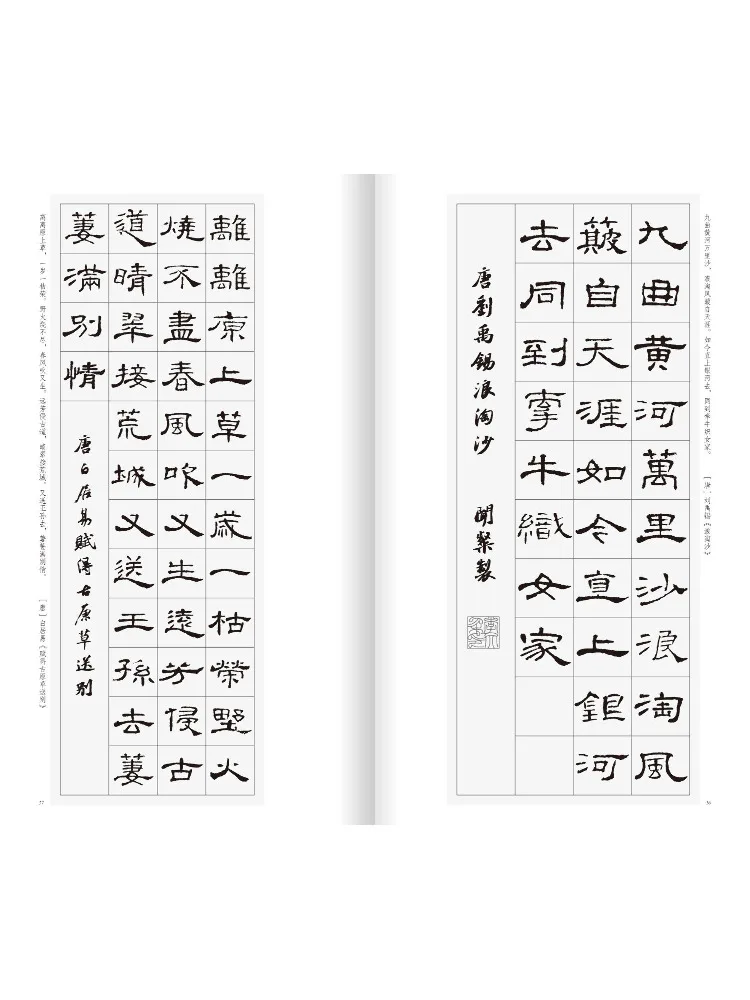 九曲黄河万里沙，浪淘风簸自天涯。如今直上银河去，同到牵牛织女家。 [唐] 刘禹锡《浪淘沙》
九曲黃河萬里沙浪淘風
簸自天涯如今直上銀河
去同到牽牛織女家
唐劉禹錫浪淘沙 聞 製
36
離離原上草一歲一枯榮野火
燒不盡春風吹又生遠芳侵古
道晴翠接荒城又送王孫去萋
萋滿別情
唐白居易賦得古原草送別
离离原上草，一岁一枯荣。野火烧不尽，春风吹又生。远芳侵古道，晴翠接荒城。又送王孙去，萋萋满别情。 [唐] 白居易《赋得古原草送别》
37